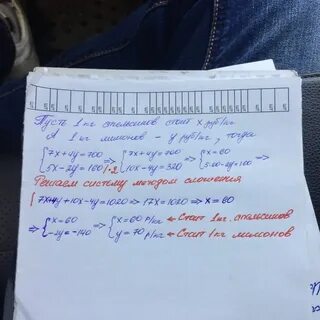 Пусть 1 кг апельсинов стоит x руб/кг
А 1 кг лимонов – y руб/кг, тогда
{7x+4y=700 {7x+4y=700 {x=60
{5x-2y=160 |·2 => {10x-4y=320 => {5·60-2y=160 =>
Решаем систему методом сложения
7x+4y+10x-4y=1020 => 17x=1020 => x=60
=> {x=60 => {x=60 р/кг ← стоит 1 кг. апельсинов
{-2y=-140 {y=70 р/кг ← стоит 1 кг лимонов